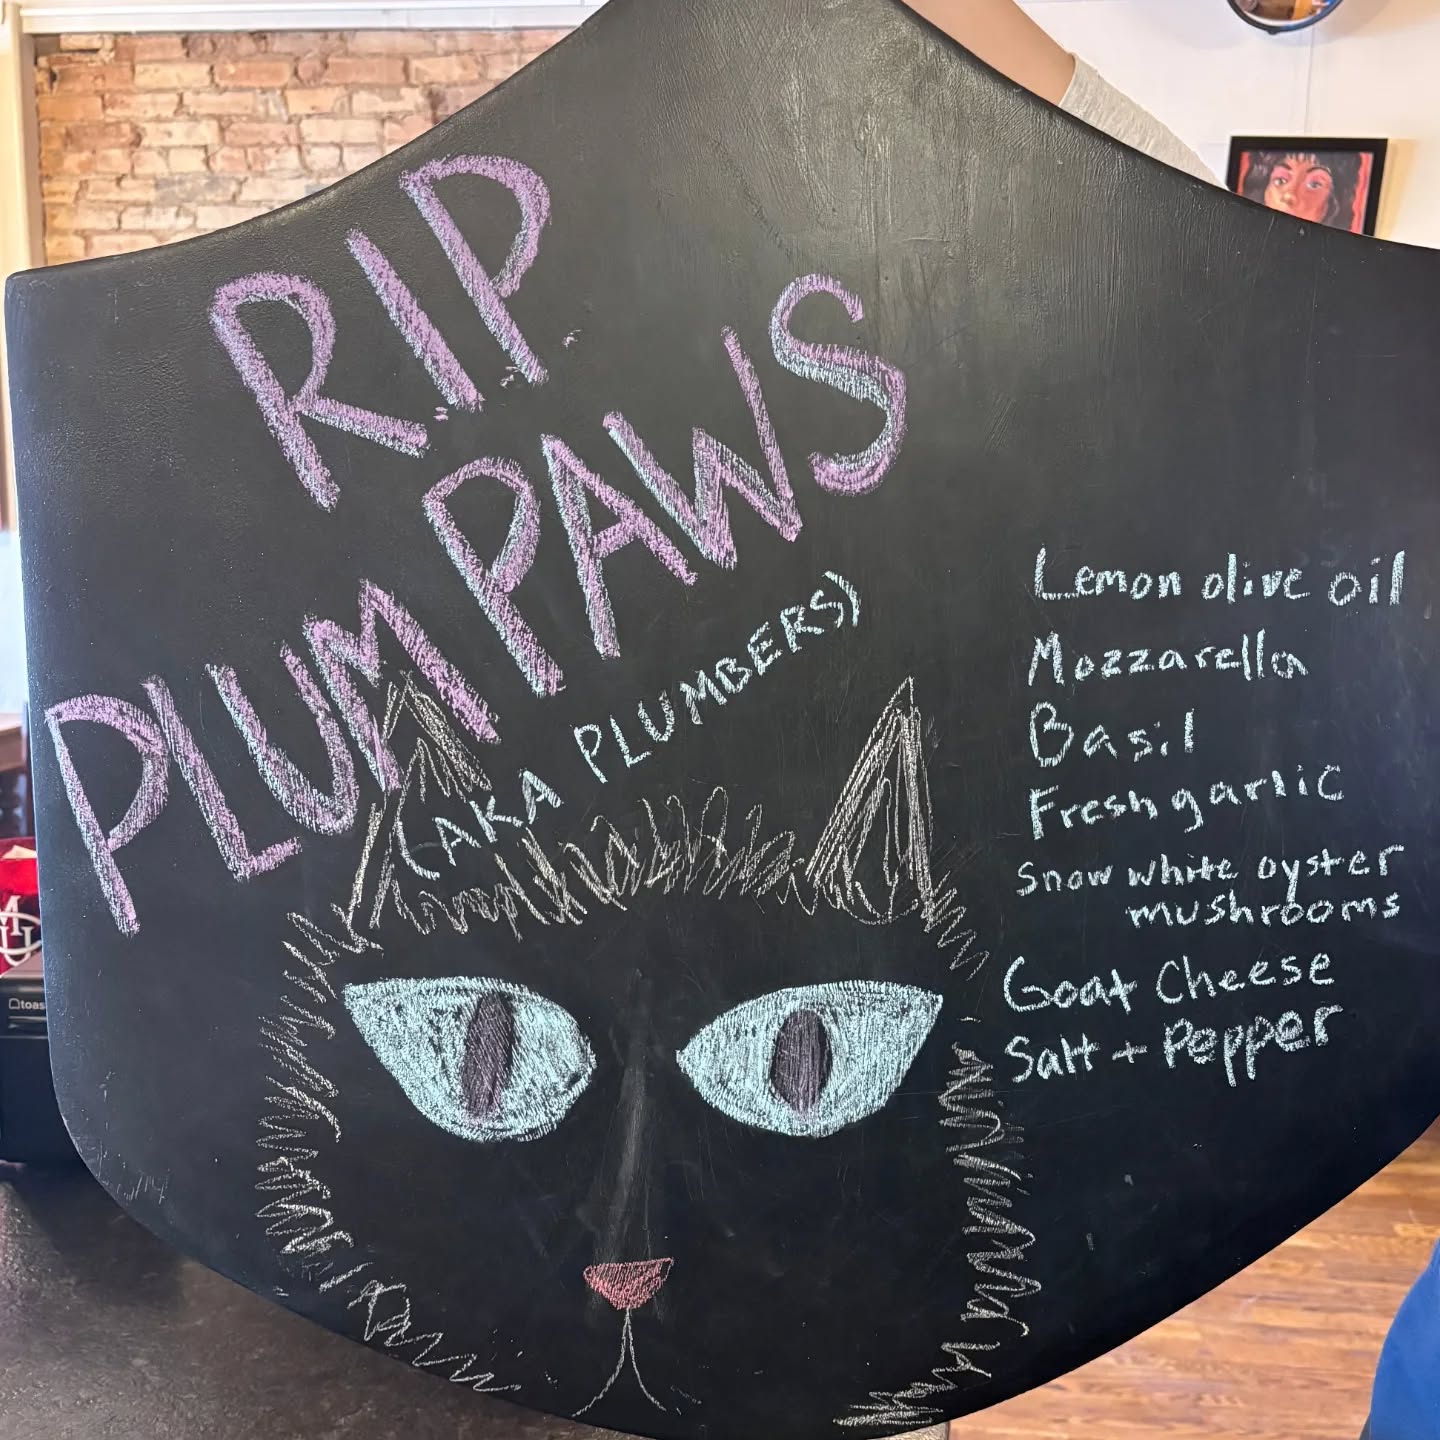 R.I.P.
PLUM PAWS
(AKA PLUMBERS)
Lemon olive oil
Mozzarella
Basil
Fresh garlic
Snow white oyster
mushrooms
Goat Cheese
Salt + Pepper
toas